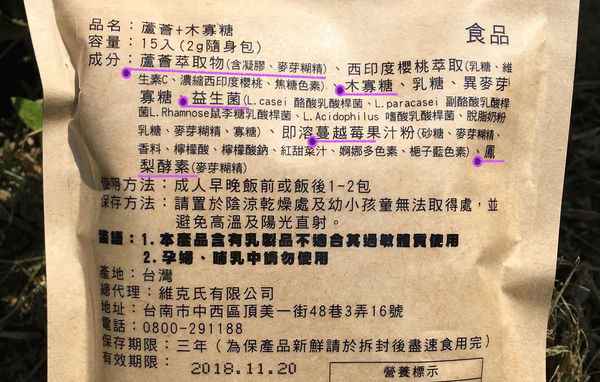 品名：蘆薈+木寡糖
食品
容量：15入(2g隨身包)
成分：蘆薈萃取物(含凝膠、麥芽糊精)、西印度櫻桃萃取(乳糖、維
生素C、濃縮西印度櫻桃、焦糖色素)、木寡糖、乳糖、異麥芽
寡糖、益生菌(L.casei 酪酸乳酸桿菌、L.paracasei 副酪酸乳酸桿
菌L.Rhamnose鼠李糖乳酸桿菌、L.Acidophilus 嗜酸乳酸桿菌、脫脂奶粉
乳糖、麥芽糊精、寡糖)、即溶蔓越莓果汁粉(砂糖、麥芽糊精、
香料、檸檬酸、檸檬酸鈉、紅甜菜汁、婀娜多色素、梔子藍色素)、鳳
梨酵素(麥芽糊精)
食用方法：成人早晚飯前或飯後1-2包
保存方法：請置於陰涼乾燥處及幼小孩童無法取得處，並
避免高溫及陽光直射。
建議：1.本產品含有乳製品不適合其過敏體質使用
2.孕婦、哺乳中請勿使用
產地：台灣
總代理：維克氏有限公司
地址：台南市中西區頂美一街48巷3弄16號
電話：0800-291188
保存期限：三年(為保產品新鮮請於拆封後盡速食用完)
有效期限：2018.11.20
營養標示